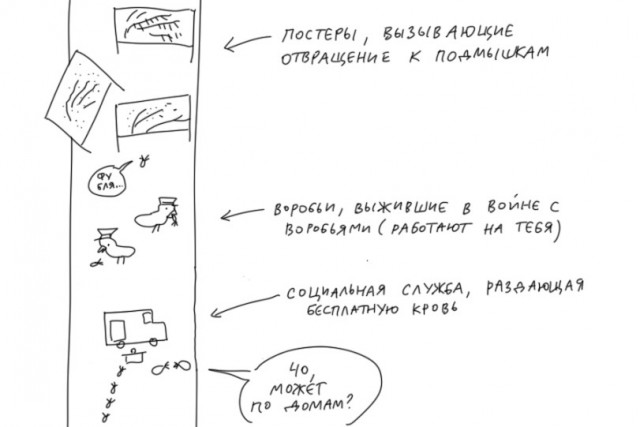 ПОСТЕРЫ, ВЫЗЫВАЮЩИЕ
ОТВРАЩЕНИЕ К ПОДМЫШКАМ
ФУ
БЛЯ...
ВОРОБЬИ, ВЫЖИВШИЕ В ВОЙНЕ С
ВОРОБЬЯМИ (РАБОТАЮТ НА ТЕБЯ)
СОЦИАЛЬНАЯ СЛУЖБА, РАЗДАЮЩАЯ
БЕСПЛАТНУЮ КРОВЬ
ЧО,
МОЖЕТ
ПО ДОМАМ?